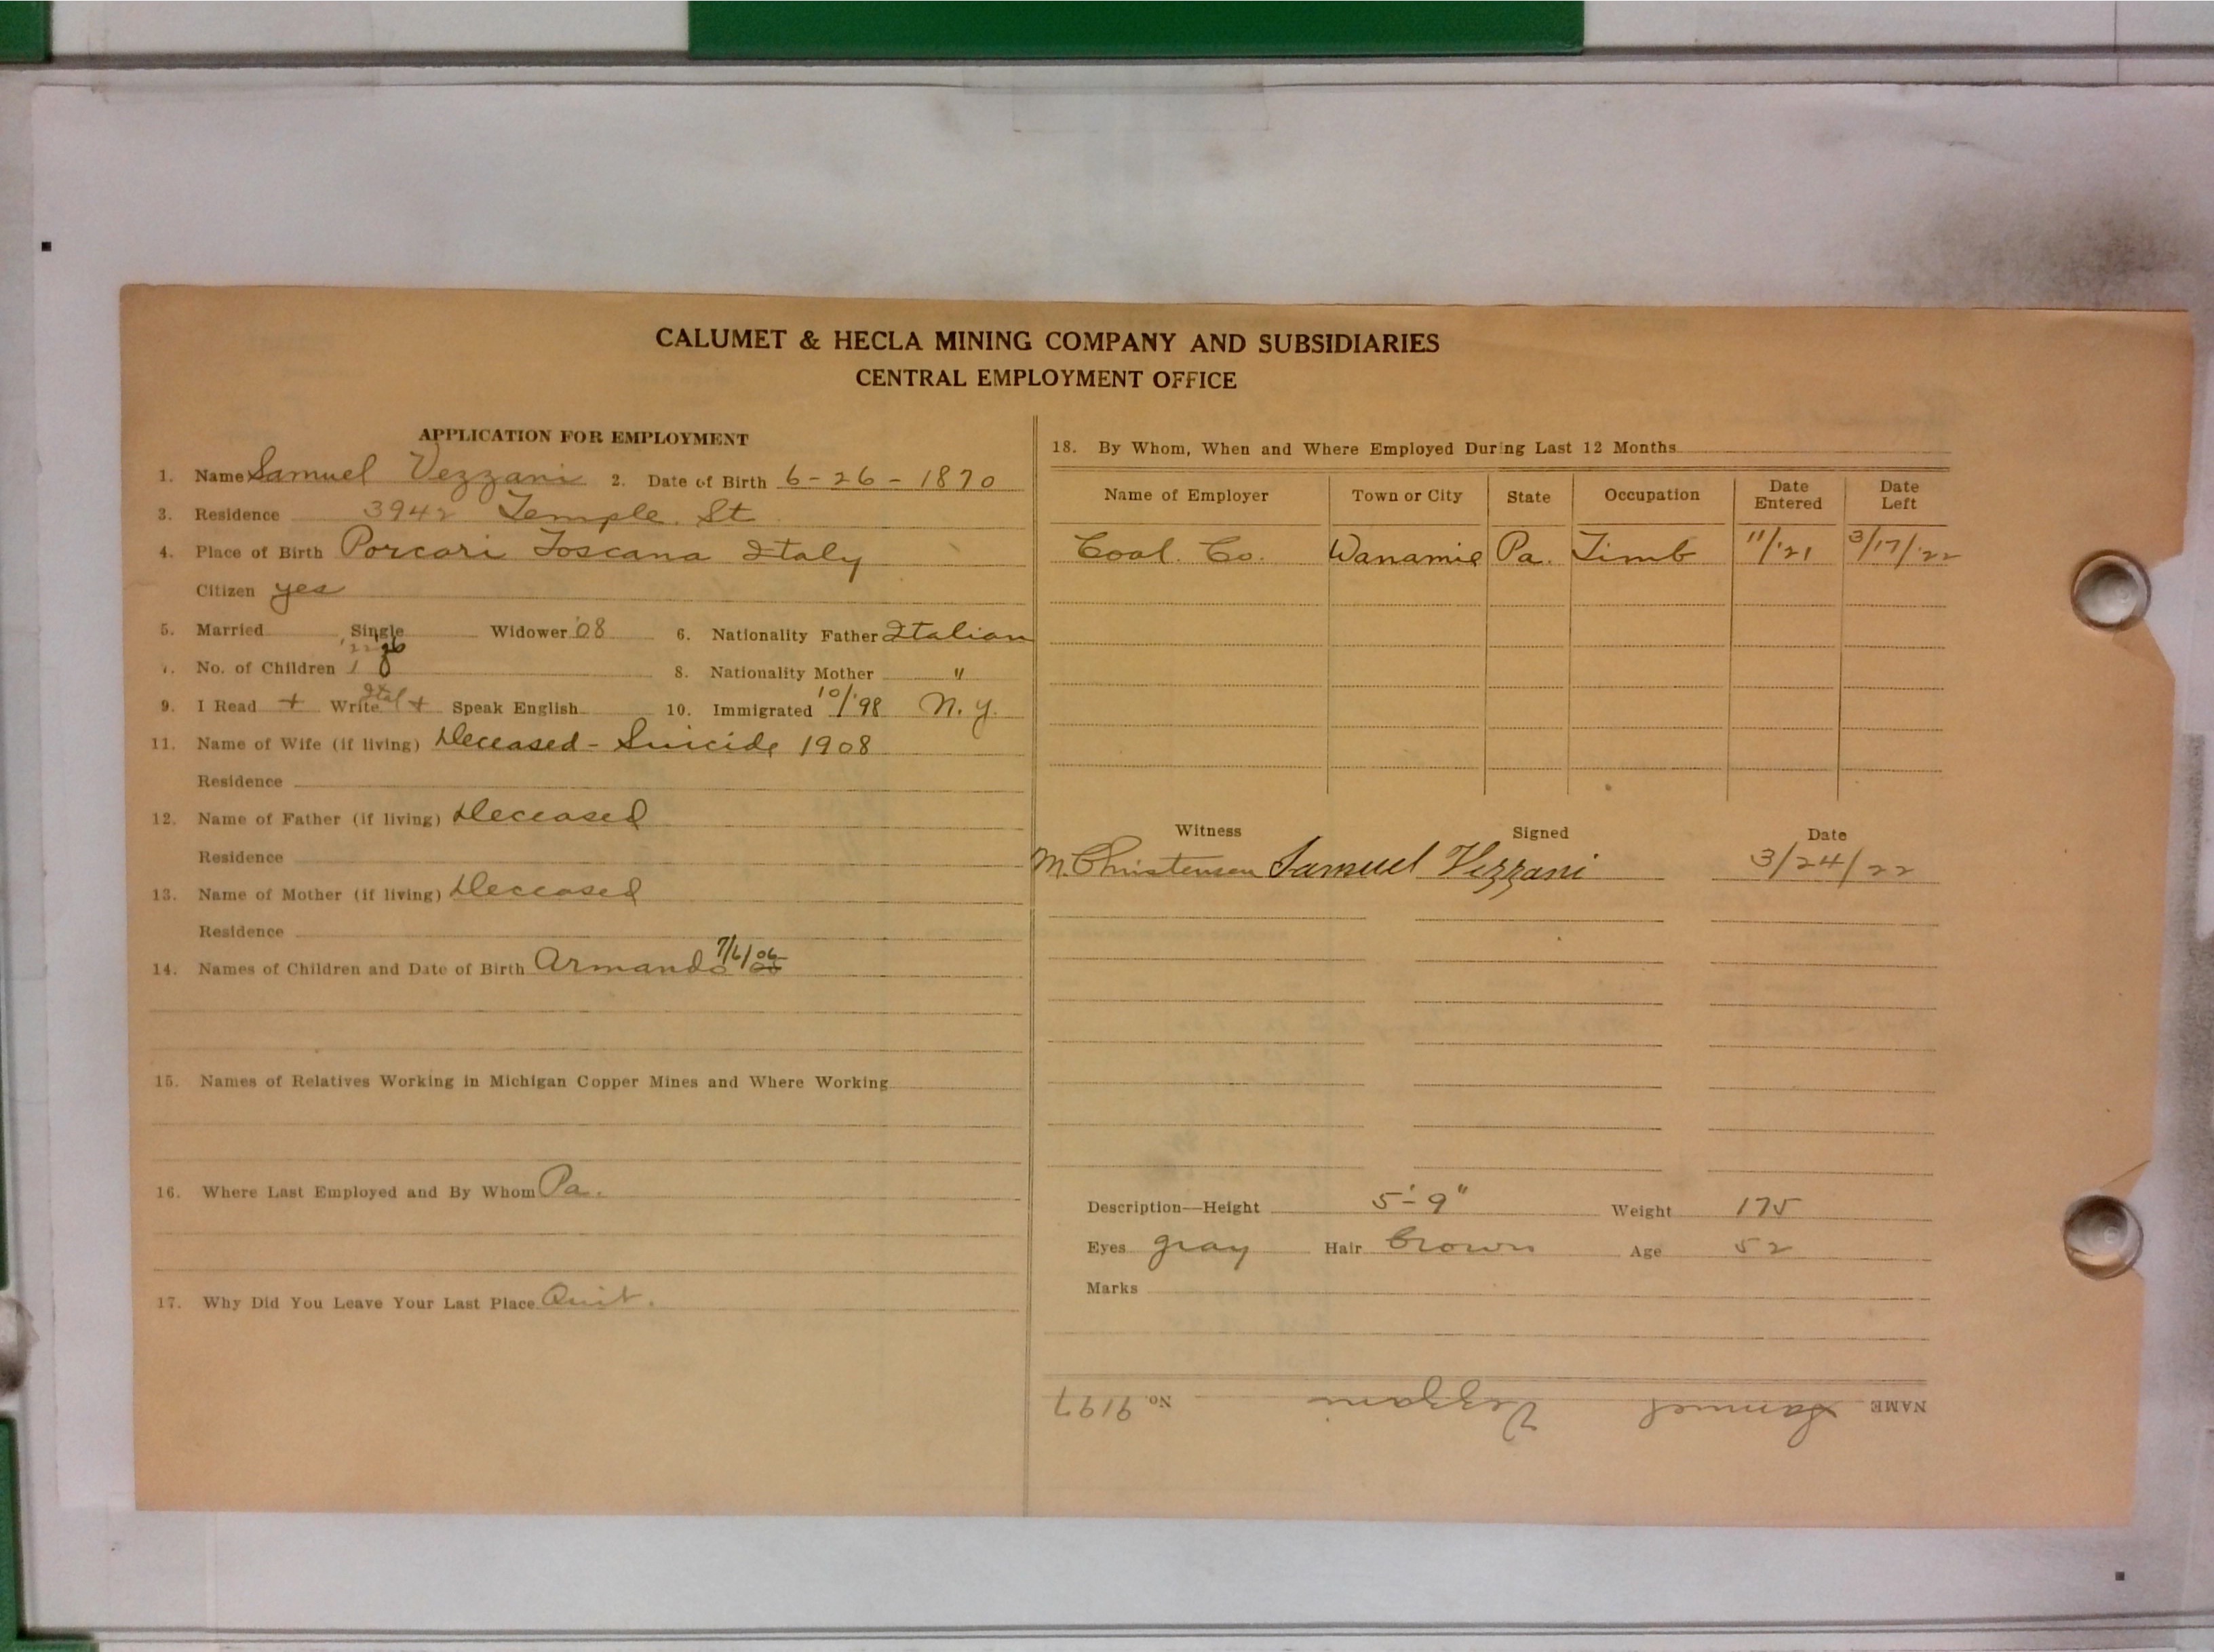 CALUMET & HECLA MINING COMPANY AND SUBSIDIARIES
CENTRAL EMPLOYMENT OFFICE
APPLICATION FOR EMPLOYMENT
1. Name Samuel Vezzani 2. Date of Birth 6-26-1870
3. Residence 3942 Temple. St
4. Place of Birth Porcari Toscana Italy
Citizen yes
5. Married Single Widower '08 6. Nationality Father Italian
7. No. of Children 1 8. Nationality Mother "
9. I Read + Write Ital + Speak English 10. Immigrated 10/'98 N.Y.
11. Name of Wife (if living) Deceased - Suicide 1908
Residence
12. Name of Father (if living) Deceased
Residence
13. Name of Mother (if living) Deceased
Residence
14. Names of Children and Date of Birth Armando 7/6/06
15. Names of Relatives Working in Michigan Copper Mines and Where Working
16. Where Last Employed and By Whom Pa.
17. Why Did You Leave Your Last Place Quit.
18. By Whom, When and Where Employed During Last 12 Months
Name of Employer Town or City State Occupation Date Entered Date Left
Coal. Co. Wanamie Pa. Timb 11/'21 3/17/'22
Witness Signed Date
M. Christensen Samuel Vezzani 3/24/22
Description—Height 5'-9" Weight 175
Eyes gray Hair Brown Age 52
Marks
NAME Samuel Vezzani No. 9197